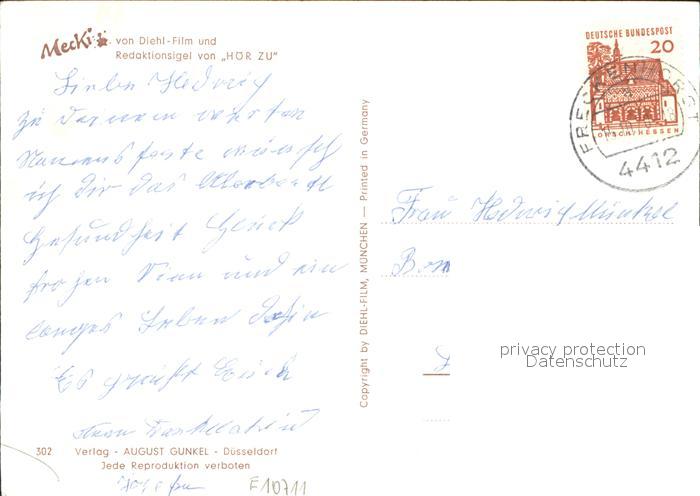 Mecki von Diehl-Film und
Redaktionsigel von „HÖR ZU"
DEUTSCHE BUNDESPOST
20
LORSCH/HESSEN
FRECKENHORST
4412
Liebe Hedwig
zu Deinem
Namensfeste wünsch
ich Dir das Allerbeste
Gesundheit Glück
frohen Sinn und ein
langes Leben
Es grüßt Euch
Frau Hedwig Münkel
Copyright by DIEHL-FILM, MÜNCHEN — Printed in Germany
privacy protection
Datenschutz
302 Verlag - AUGUST GUNKEL - Düsseldorf
Jede Reproduktion verboten
E10711